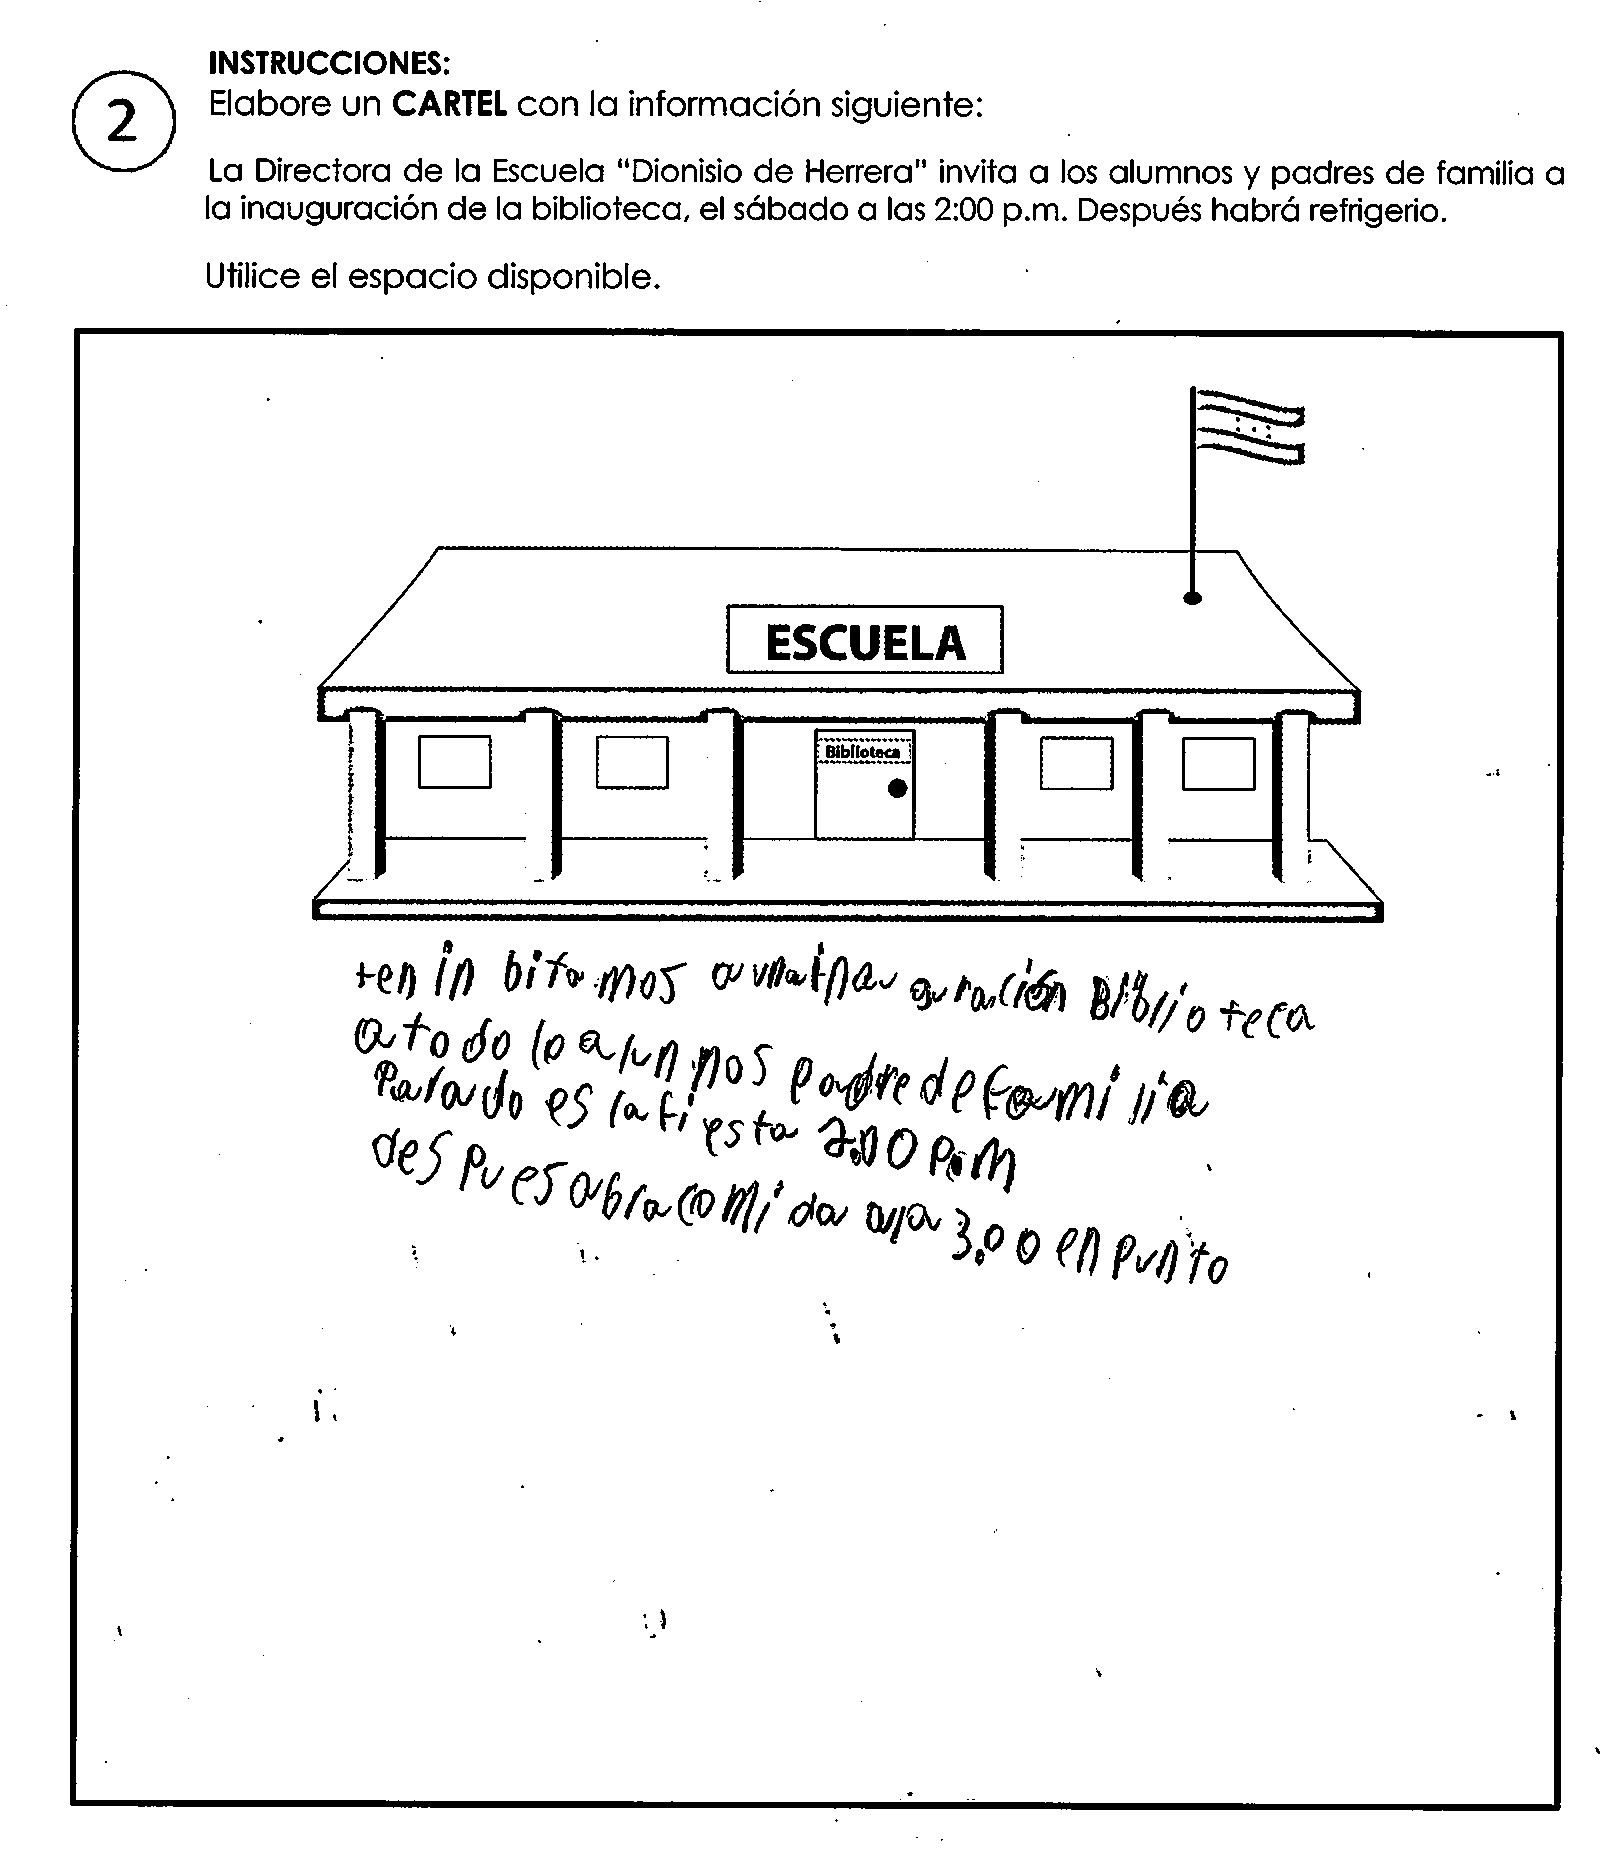 INSTRUCCIONES:
2
Elabore un CARTEL con la información siguiente:
La Directora de la Escuela "Dionisio de Herrera" invita a los alumnos y padres de familia a
la inauguración de la biblioteca, el sábado a las 2:00 p.m. Después habrá refrigerio.
Utilice el espacio disponible.
ESCUELA
Biblioteca
ten in bita mos a una inau guración Biblio teca
a todo lo alun nos padre de familia
Parado es la fi esta 2:00 P.M
des pu es abra comi da ala 3.00 en punto